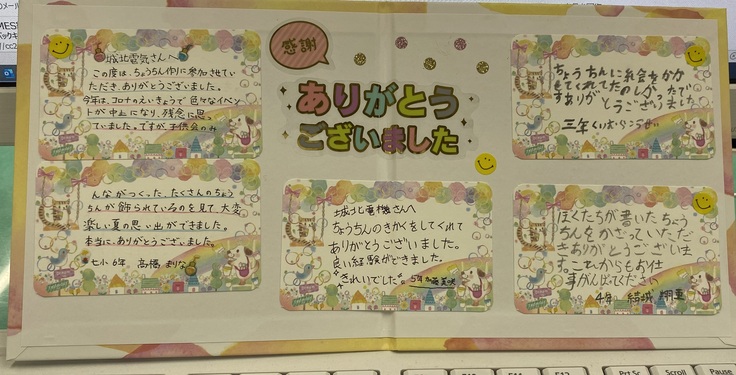 感謝
ありがとう
ございました
城北電気さんへ
この度は、ちょうちん作りに参加させてい
ただき、ありがとうございました。
今年は、コロナのえいきょうで色々なイベン
トが中止になり、残念に思っ
ていました。ですが子供会のみ
んながつくった、たくさんのちょう
ちんが飾られているのを見て、大変
楽しい夏の思い出ができました。
本当に、ありがとうございました。
七小6年 高橋 まりな
城北電機さんへ
ちょうちんのきかくをしてくれて
ありがとうございました。
良い経験ができました。
きれいでした
5年
ちょうちんに絵をかか
せてくれてたのしかったで
すありがとうございました
三年
ぼくたちが書いたちょう
ちんをかざっていただ
きありがとうございま
す。これからもお仕
事がんばってください
4年 結城 翔
Prt Sc
Scroll
Pause
F11
F12